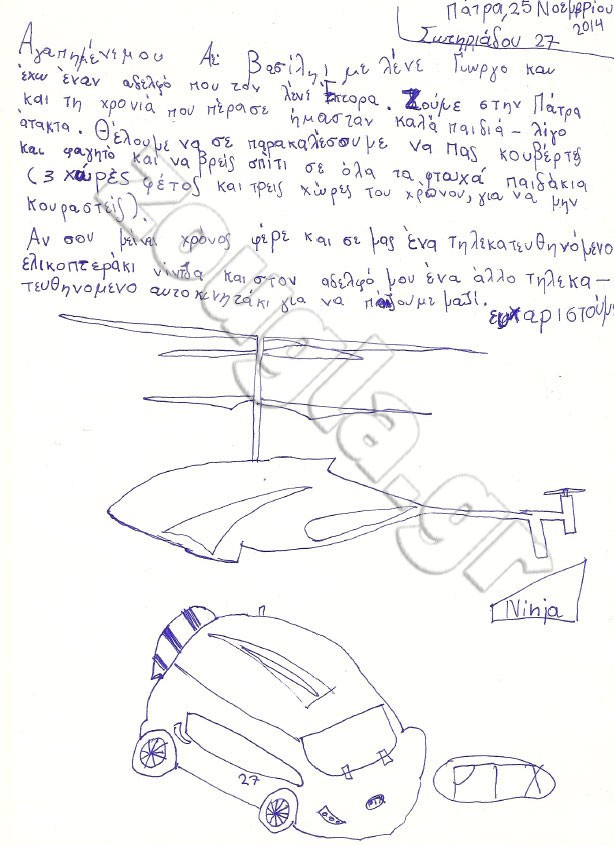 Πάτρα, 25 Νοεμβρίου
2014
Σωτηριάδου 27
Αγαπημένε μου Αϊ Βασίλη, με λένε Γιώργο και
έχω έναν αδελφό που τον λένε Έκτορα. Ζούμε στην Πάτρα
και τη χρονιά που πέρασε ήμασταν καλά παιδιά - λίγο
άτακτα. Θέλουμε να σε παρακαλέσουμε να πας κουβέρτες
και φαγητό και να βρείς σπίτι σε όλα τα φτωχά παιδάκια
(3 χώρες φέτος και τρεις χώρες του χρόνου, για να μην
κουραστείς).
Αν σου μείνει χρόνος φέρε και σε μας ένα τηλεκατευθηνόμενο
ελικοπτεράκι νίντζα και στον αδελφό μου ένα άλλο τηλεκα-
τευθηνομενο αυτοκινητάκι για να παίζουμε μαζί.
ευχαριστούμ
zougla.gr
Ninja
27
PTX